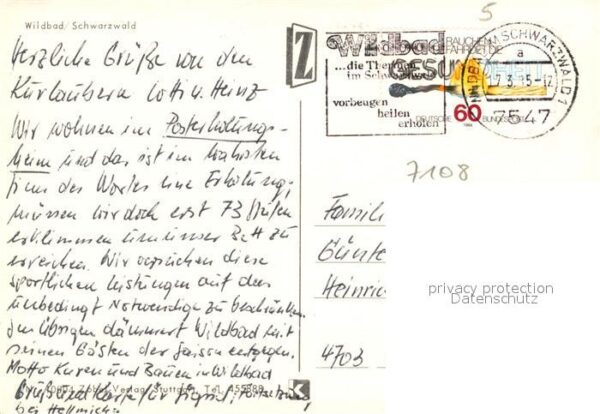 Wildbad/Schwarzwald
5
Herzliche Grüße von den
Kurlaubern Lotti u. Heinz
Wir wohnen im Posterholungs-
heim und das ist im wahrsten
Sinn des Wortes eine Erholung,
müssen wir doch erst 73 Stufen
erklimmen um unser Bett zu
erreichen. Wir versuchen diese
sportlichen Leistungen auf das
unbedingt Notwendige zu beschränken
Im Übrigen dämmert Wildbad mit
seinen Gästen der Saison entgegen.
Motto Kuren und Bauen in Wildbad
Gruß und Karte für
bei
Verlag, Stuttgart, Tel.
Z
Wildbad
...die Thermen
im Schwarzwald
vorbeugen
heilen
erholen
RAUCHEN
GEFÄHRDET DIE
GESUN
60
DEUTSCHE BUNDESPOST
SCHWARZWALD 1
a
7547
7108
Famili
Günte
Heinric
4703
privacy protection
Datenschutz
K